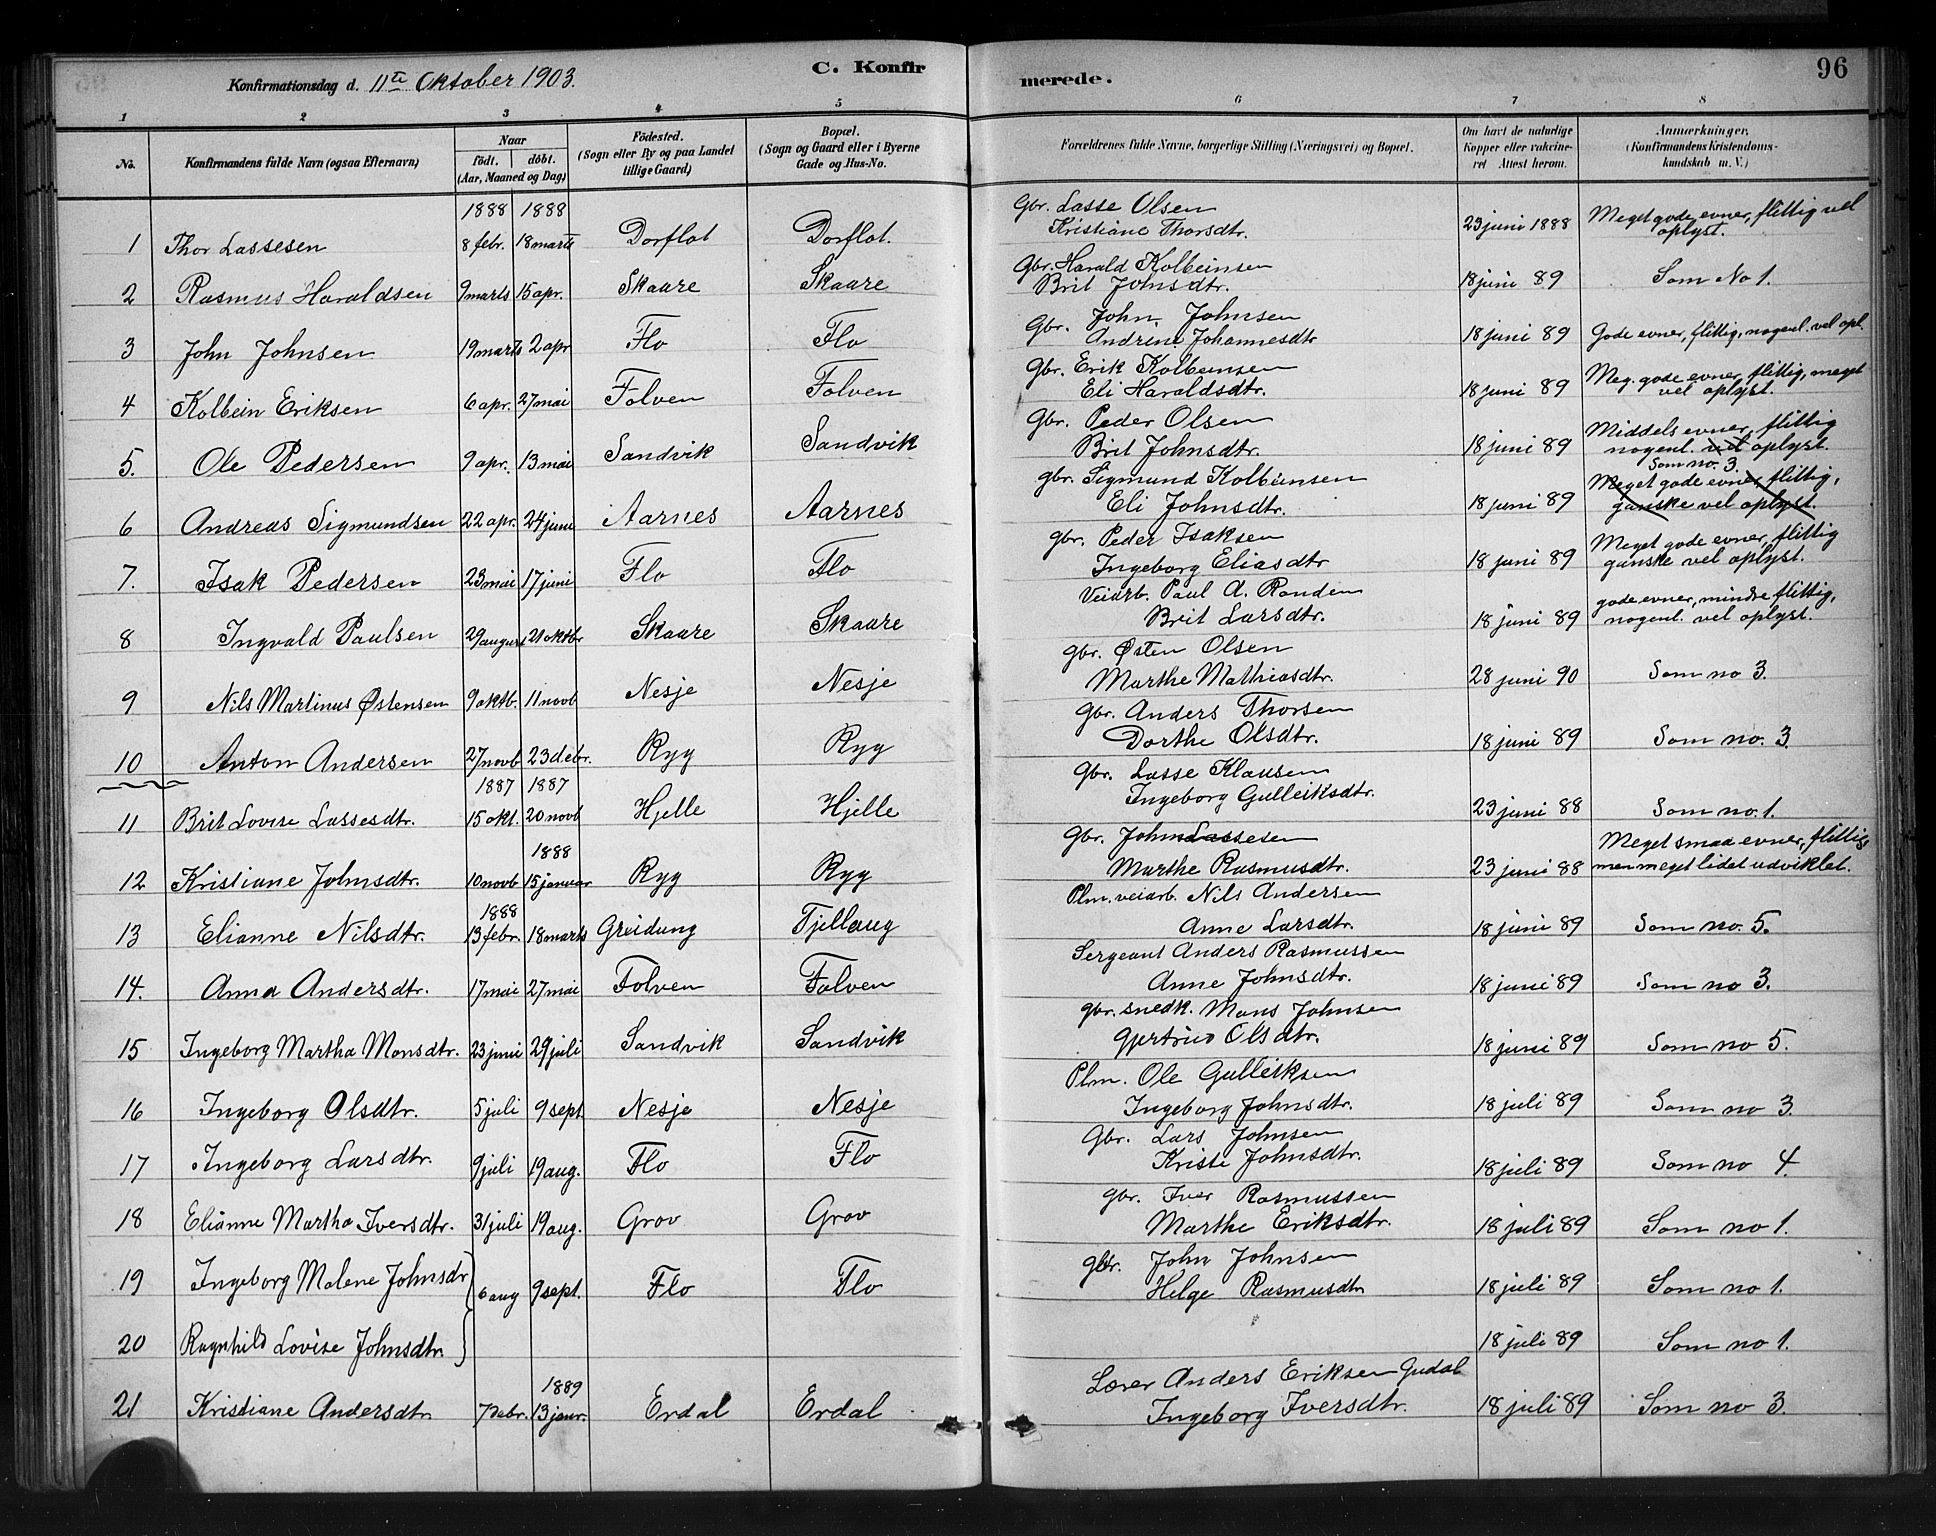 C. Konfirmerede. 96
Konfirmationsdag d. 11te Oktober 1903.
1 2 3 4 5 6 7 8
No. Konfirmandens fulde Navn (ogsaa Efternavn) Naar födt. döbt. (Aar, Maaned og Dag) Födested. (Sogn eller By og paa Landet tillige Gaard.) Bopæl. (Sogn og Gaard eller i Byerne Gade og Hus-No. Forældrenes fulde Navne, borgerlige Stilling (Næringsvei) og Bopæl. Om havt de naturlige Kopper eller vakcineret Attest herom. Anmærkninger, (Konfirmandens Kristendomskundskab m. V.)
1888 1888
1 Thor Lassesen 8 febr. 18 marts Dorflot Dorflot. Gbr. Lasse Olsen Kristiane Thorsdtr. 23 juni 1888 Meget gode evner, flittig vel oplyst.
2 Rasmus Haraldsen 9 marts 15 apr. Skaare Skaare Gbr. Harald Kolbeinsen Brit Johnsdtr. 18 juni 89 Som No 1.
3 John Johnsen 19 marts 2 apr Flo Flo Gbr. John Johnsen Andrine Johannesdtr 18 juni 89 Gode evner, flittig, nogenl. vel opl.
4 Kolbein Eriksen 6 apr. 27 mai Folven Folven Gbr. Erik Kolbeinsen Eli Haraldsdtr. 18 juni 89 Meg. gode evner, flittig, meget vel oplyst.
5. Ole Pedersen 9 apr. 13 mai Sandvik Sandvik Gbr. Peder Olsen Brit Johnsdtr. 18 juni 89 Middels evner, flittig nogenl. vel oplyst.
6 Andreas Sigmundsen 22 apr. 24 juni Aarnes Aarnes gbr. Sigmund Kolbeinsen Eli Johnsdtr. 18 juni 89 Som no. 3. Meget gode evner, flittig, ganske vel oplyst.
7. Isak Pedersen 23 mai 17 juni Flo Flo gbr. Peder Isaksen Ingeborg Eliasdtr 18 juni 89 Meget gode evner, flittig ganske vel oplyst.
8 Ingvald Paulsen 29 august 21 oktbr Skaare Skaare Veiarb. Paul A. Randen Brit Larsdtr. 18 juni 89 gode evner, mindre flittig, nogenl. vel oplyst.
9 Nils Martinus Østensen 9 oktb. 11 novb Nesje Nesje gbr. Østen Olsen Marthe Mathiasdtr. 28 juni 90 Som no 3.
10 Anton Andersen 27 novb 23 debr. Ryg Ryg gbr. Anders Thorsen Dorthe Olsdtr. 18 juni 89 Som no. 3.
1887 1887
11 Brit Lovise Lassesdtr. 15 okt. 20 novb Hjelle Hjelle gbr. Lasse Klausen Ingeborg Gulleiksdtr. 23 juni 88 Som no. 1.
1888
12 Kristiane Johnsdtr. 10 novb 15 januar Ryg Ryg Gbr. John Lassesen Marthe Rasmusdtr. 23 juni 88 Meget smaa evner, flittig, men meget lidet udviklet.
1888
13 Elianne Nilsdtr. 13 febr. 18 marts Greidung Tjellaug Plm. veiarb. Nils Andersen Anne Larsdtr. 18 juni 89 Som no. 5.
14. Anna Andersdtr. 17 mai 27 mai Folven Folven Sergeant Anders Rasmussen Anne Johnsdtr. 18 juni 89 Som no 3.
15 Ingeborg Martha Monsdtr. 23 juni 29 juli Sandvik Sandvik gbr. snedk. Mons Johnsen Gjertrud Olsdtr. 18 juni 89 Som no 5.
16 Ingeborg Olsdtr. 5 juli 9 sept. Nesje Nesje Plm. Ole Gulleiksen Ingeborg Johnsdtr. 18 juli 89 Som no 3.
17 Ingeborg Larsdtr. 9 juli 19 aug. Flo Flo Gbr. Lars Johnsen Kriste Johnsdtr. 18 juli 89 Som no 4.
18 Elianne Martha Iversdtr. 31 juli 19 aug. Grov Grov gbr. Iver Rasmussen Marthe Eriksdtr. 18 juli 89 Som no 1.
19 Ingeborg Malene Johnsdr 6 aug 9 sept. Flo Flo gbr. John Johnsen Helge Rasmusdtr 18 juli 89 Som no 1.
20 Ragnhild Lovise Johnsdtr. 18 juli 89 Som no 1.
1889
21 Kristiane Andersdtr. 7 debr. 13 janr. Erdal Erdal Lærer Anders Eriksen Gudal Ingeborg Iversdtr. 18 juli 89 Som no 3.